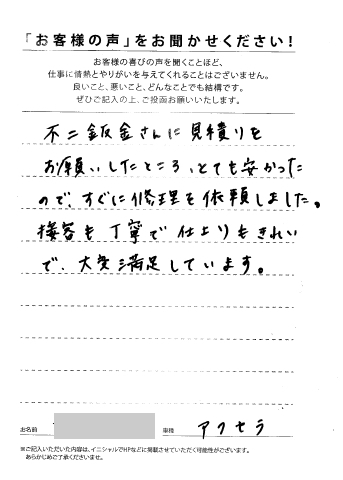 「お客様の声」をお聞かせください！
お客様の喜びの声を聞くことほど、
仕事に情熱とやりがいを与えてくれることはございません。
良いこと、悪いこと、どんなことでも結構です。
ぜひご記入の上、ご投函お願いいたします。
不二鈑金さんに見積りを
お願いしたところ、とても安かった
ので、すぐに修理を依頼しました。
接客も丁寧で仕上りもきれい
で、大変満足しています。
お名前 車種 アクセラ
※ご記入いただいた内容は、イニシャルでHPなどに掲載させていただく可能性がございます。
あらかじめご了承くださいませ。